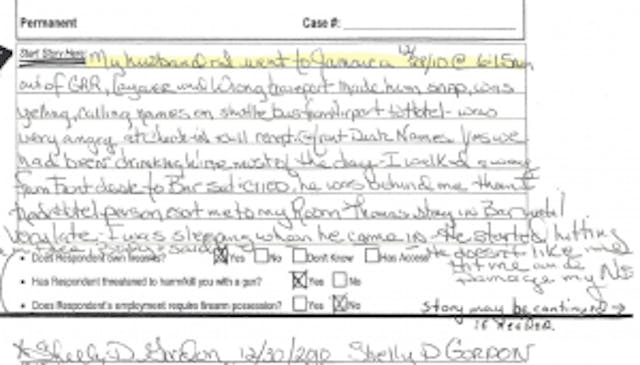 Permanent Case #:
Start Story Here: My husband and I went to Jamaica 12/28/10 @ 6:15am
out of GRR, layover and wrong transport made him snap, was
yelling, calling names on shuttle bus from airport to Hotel - was
very angry, at check-in Front Desk Names. Yes we
had been drinking wine most of the day - I walked away
from Front desk to Bar sat cried, he was behind me then I
had Hotel person escort me to my Room Thomas stay in Bar until
very late. I was sleeping when he came in. He started hitting
me
• Does Respondent own firearms? Yes No Don't Know Has Access
He doesn't like
hit me and
• Has Respondent threatened to harm/kill you with a gun? Yes No
Damage my
• Does Respondent's employment require firearm possession? Yes No
Story may be continued →
if needed.
Shelly D. Gordon 12/30/2010 Shelly D GORDON